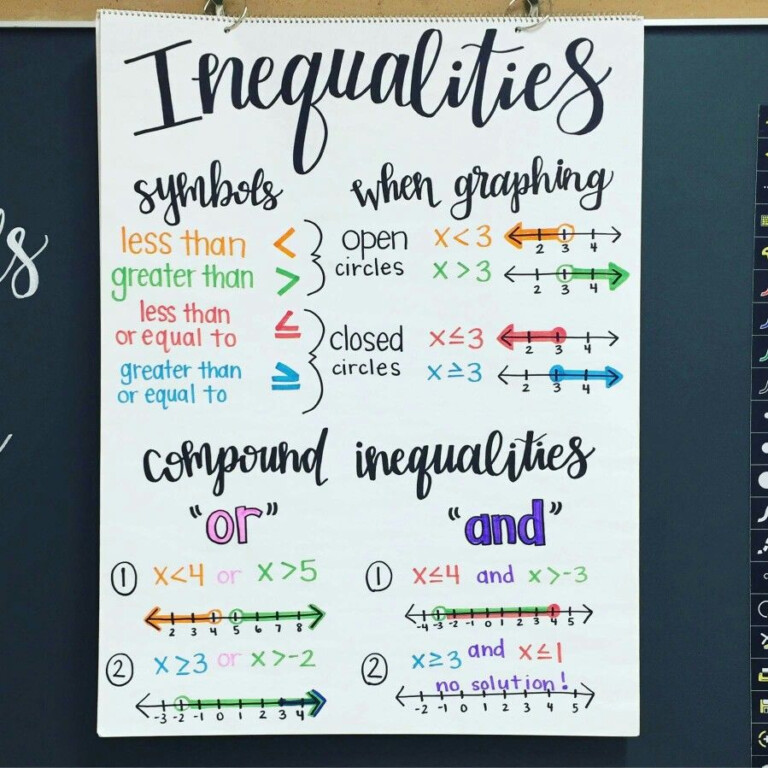 Inequalities
symbols
less than <
greater than >
less than ≤
or equal to
greater than ≥
or equal to
when graphing
open x<3
circles
2 3 4
x>3
2 3 4
closed x≤3
circles
2 3 4
x≥3
2 3 4
compound inequalities
"or"
① x<4 or x>5
2 3 4 5 6 7 8
② x≥3 or x>-2
-3 -2 -1 0 1 2 3 4
"and"
① x≤4 and x>-3
-4 -3 -2 -1 0 1 2 3 4 5
② x≥3 and x≤1
no solution!
-2 -1 0 1 2 3 4 5